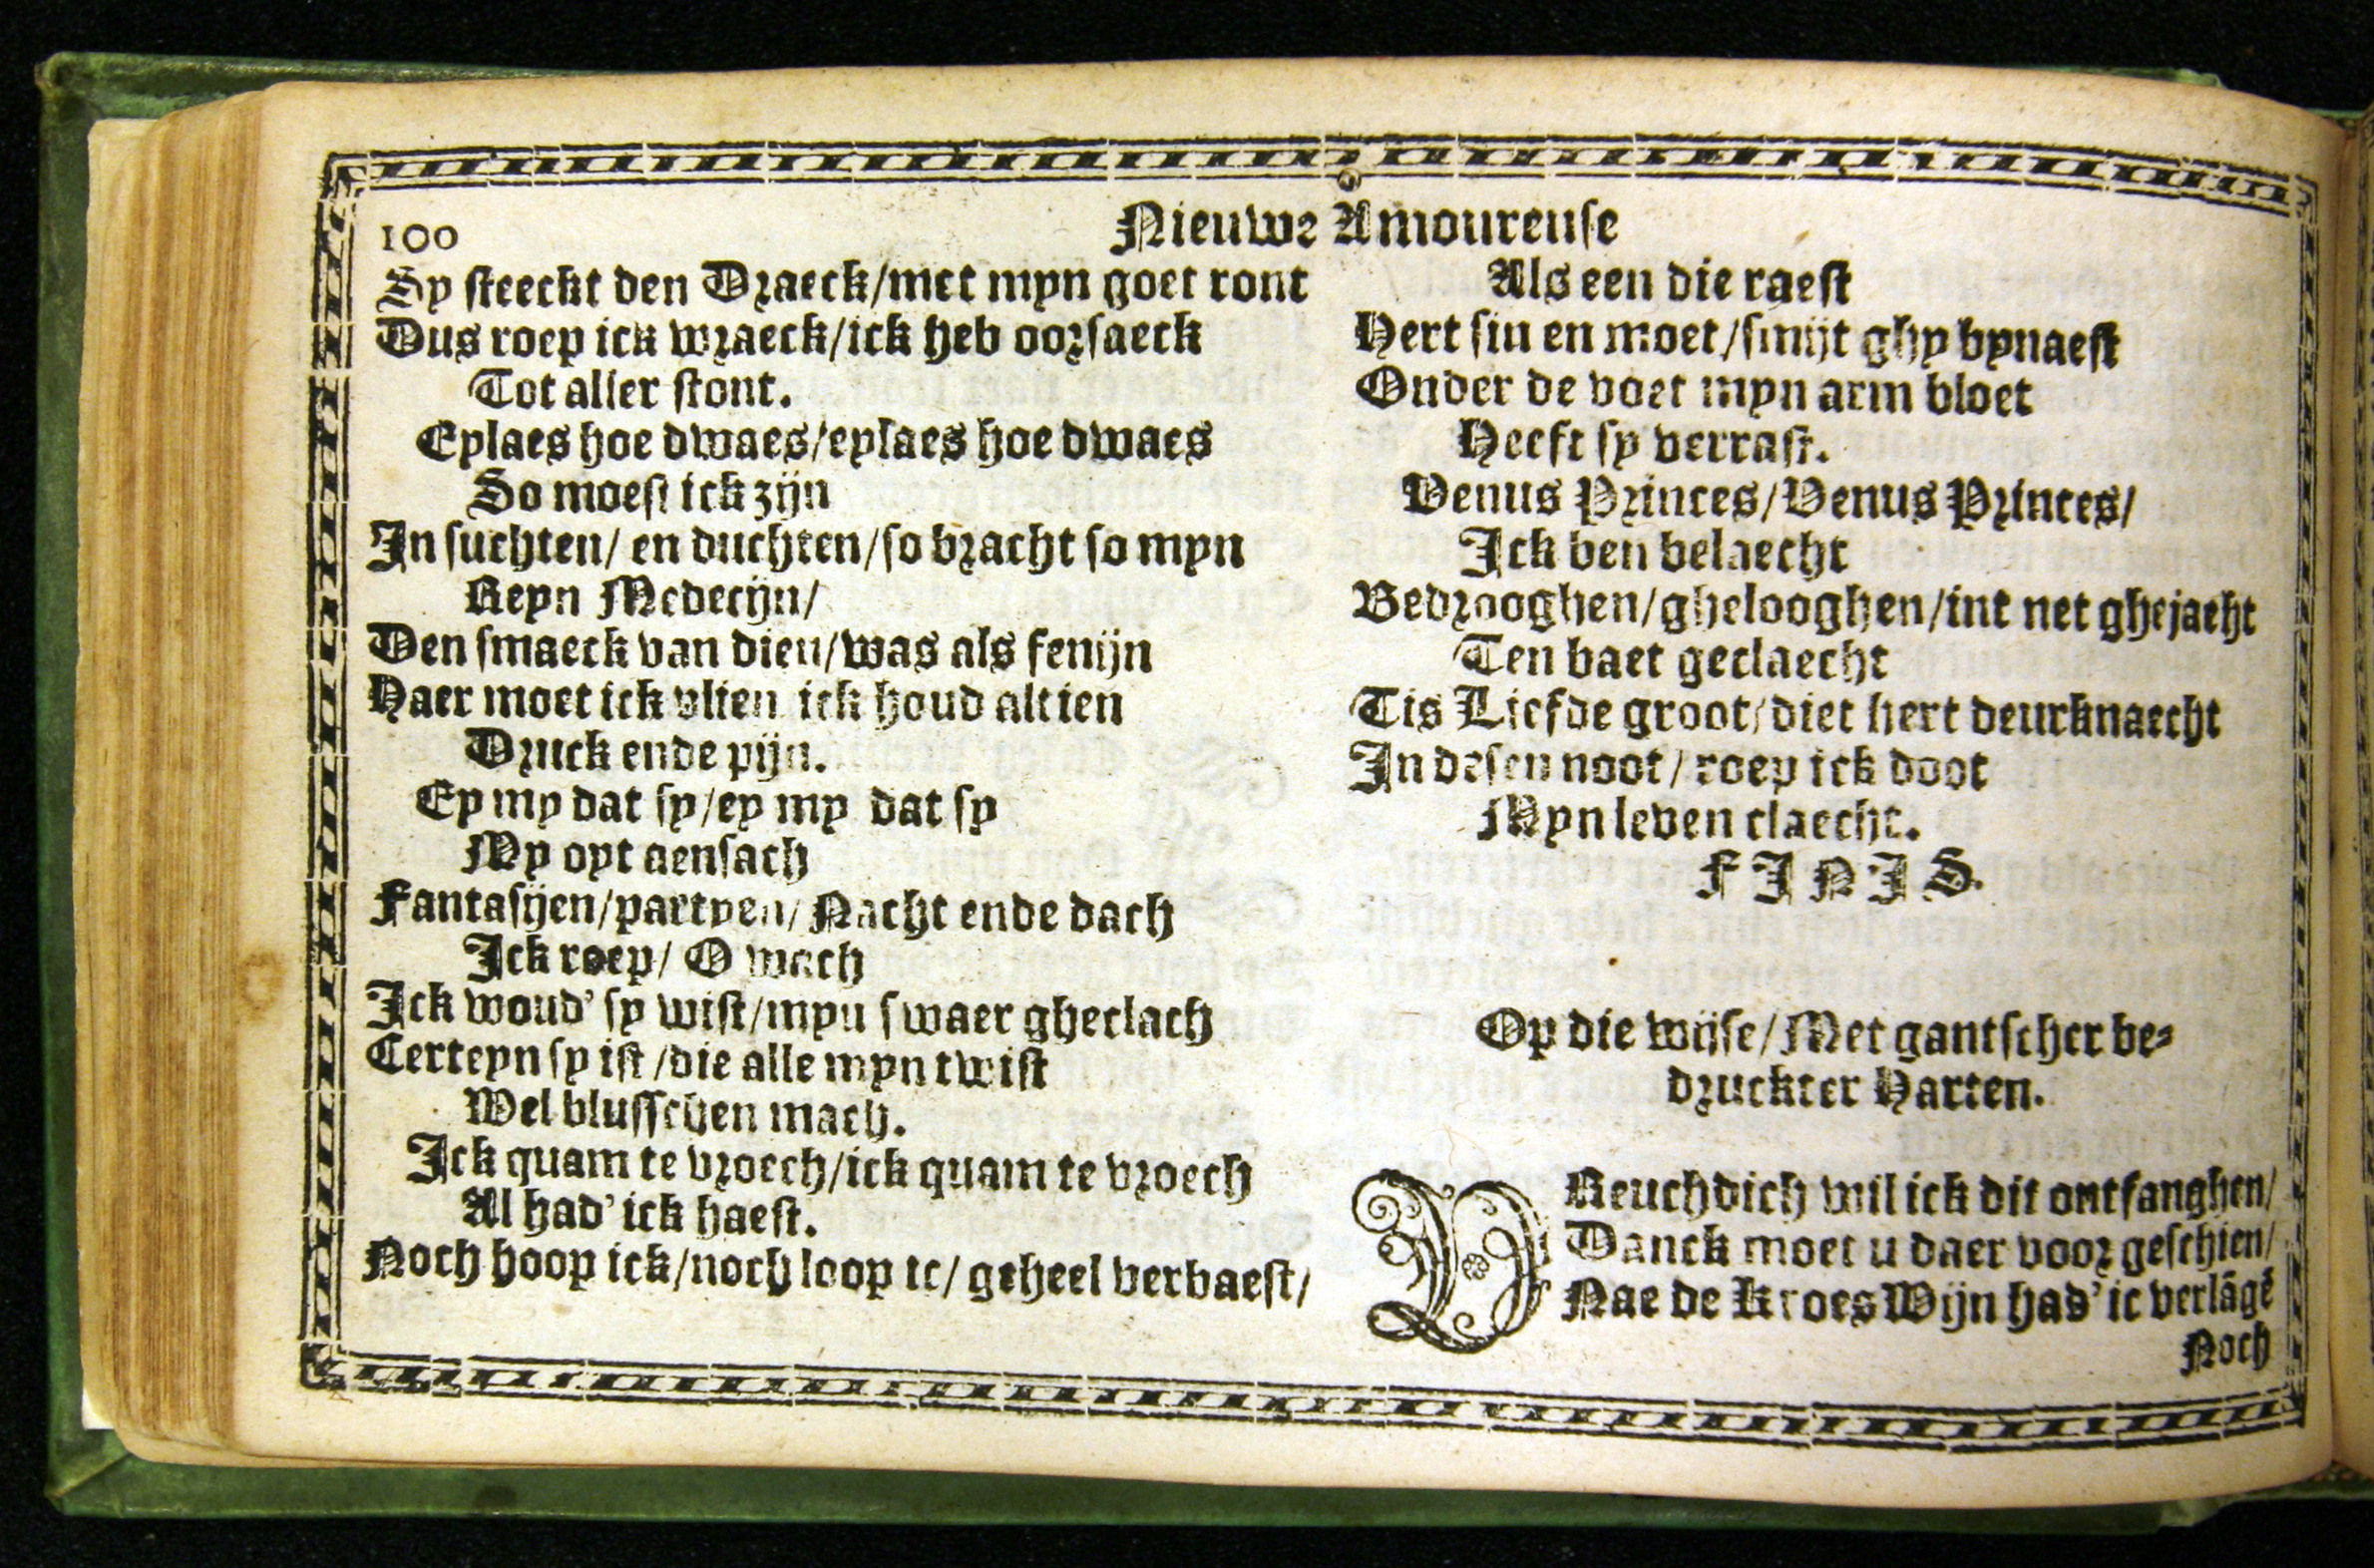 100
Nieuwe Amoureuse
Sy steeckt den Draeck/met myn goet ront
Dus roep ick wraeck/ick heb oorsaeck
Tot aller stont.
Eylaes hoe dwaes/eylaes hoe dwaes
So moest ick zijn
In suchten/ en duchten/so bracht so myn
Reyn Medecijn/
Den smaeck van dien/was als fenijn
Haer moet ick vlien ick houd altien
Druck ende pijn.
Ey my dat sy/ey my dat sy
My oyt aensach
Fantasijen/partyen/ Nacht ende dach
Ick roep/ O wach
Ick woud' sy wist/myn swaer gheclach
Certeyn sy ist/die alle myn twist
Wel blusschen mach.
Ick quam te vroech/ick quam te vroech
Al had' ick haest.
Noch hoop ick/noch loop ic/ geheel verbaest/
Als een die raest
Hert sin en moet/smijt ghy bynaest
Onder de voet myn arm bloet
Heeft sy verrast.
Venus Princes/Venus Princes/
Ick ben belaecht
Bedrooghen/ghelooghen/int net ghejaeht
Ten baet geclaecht
Tis Liefde groot/diet hert deurknaecht
In desen noot/ roep ick doot
Myn leven claecht.
FINIS.
Op die wijse/ Met gantscher be-
druckter Harten.
VReuchdich wil ick dit ontfanghen/
Danck moet u daer voor geschien/
Nae de Kroes Wijn had' ic verlãgẽ
Noch